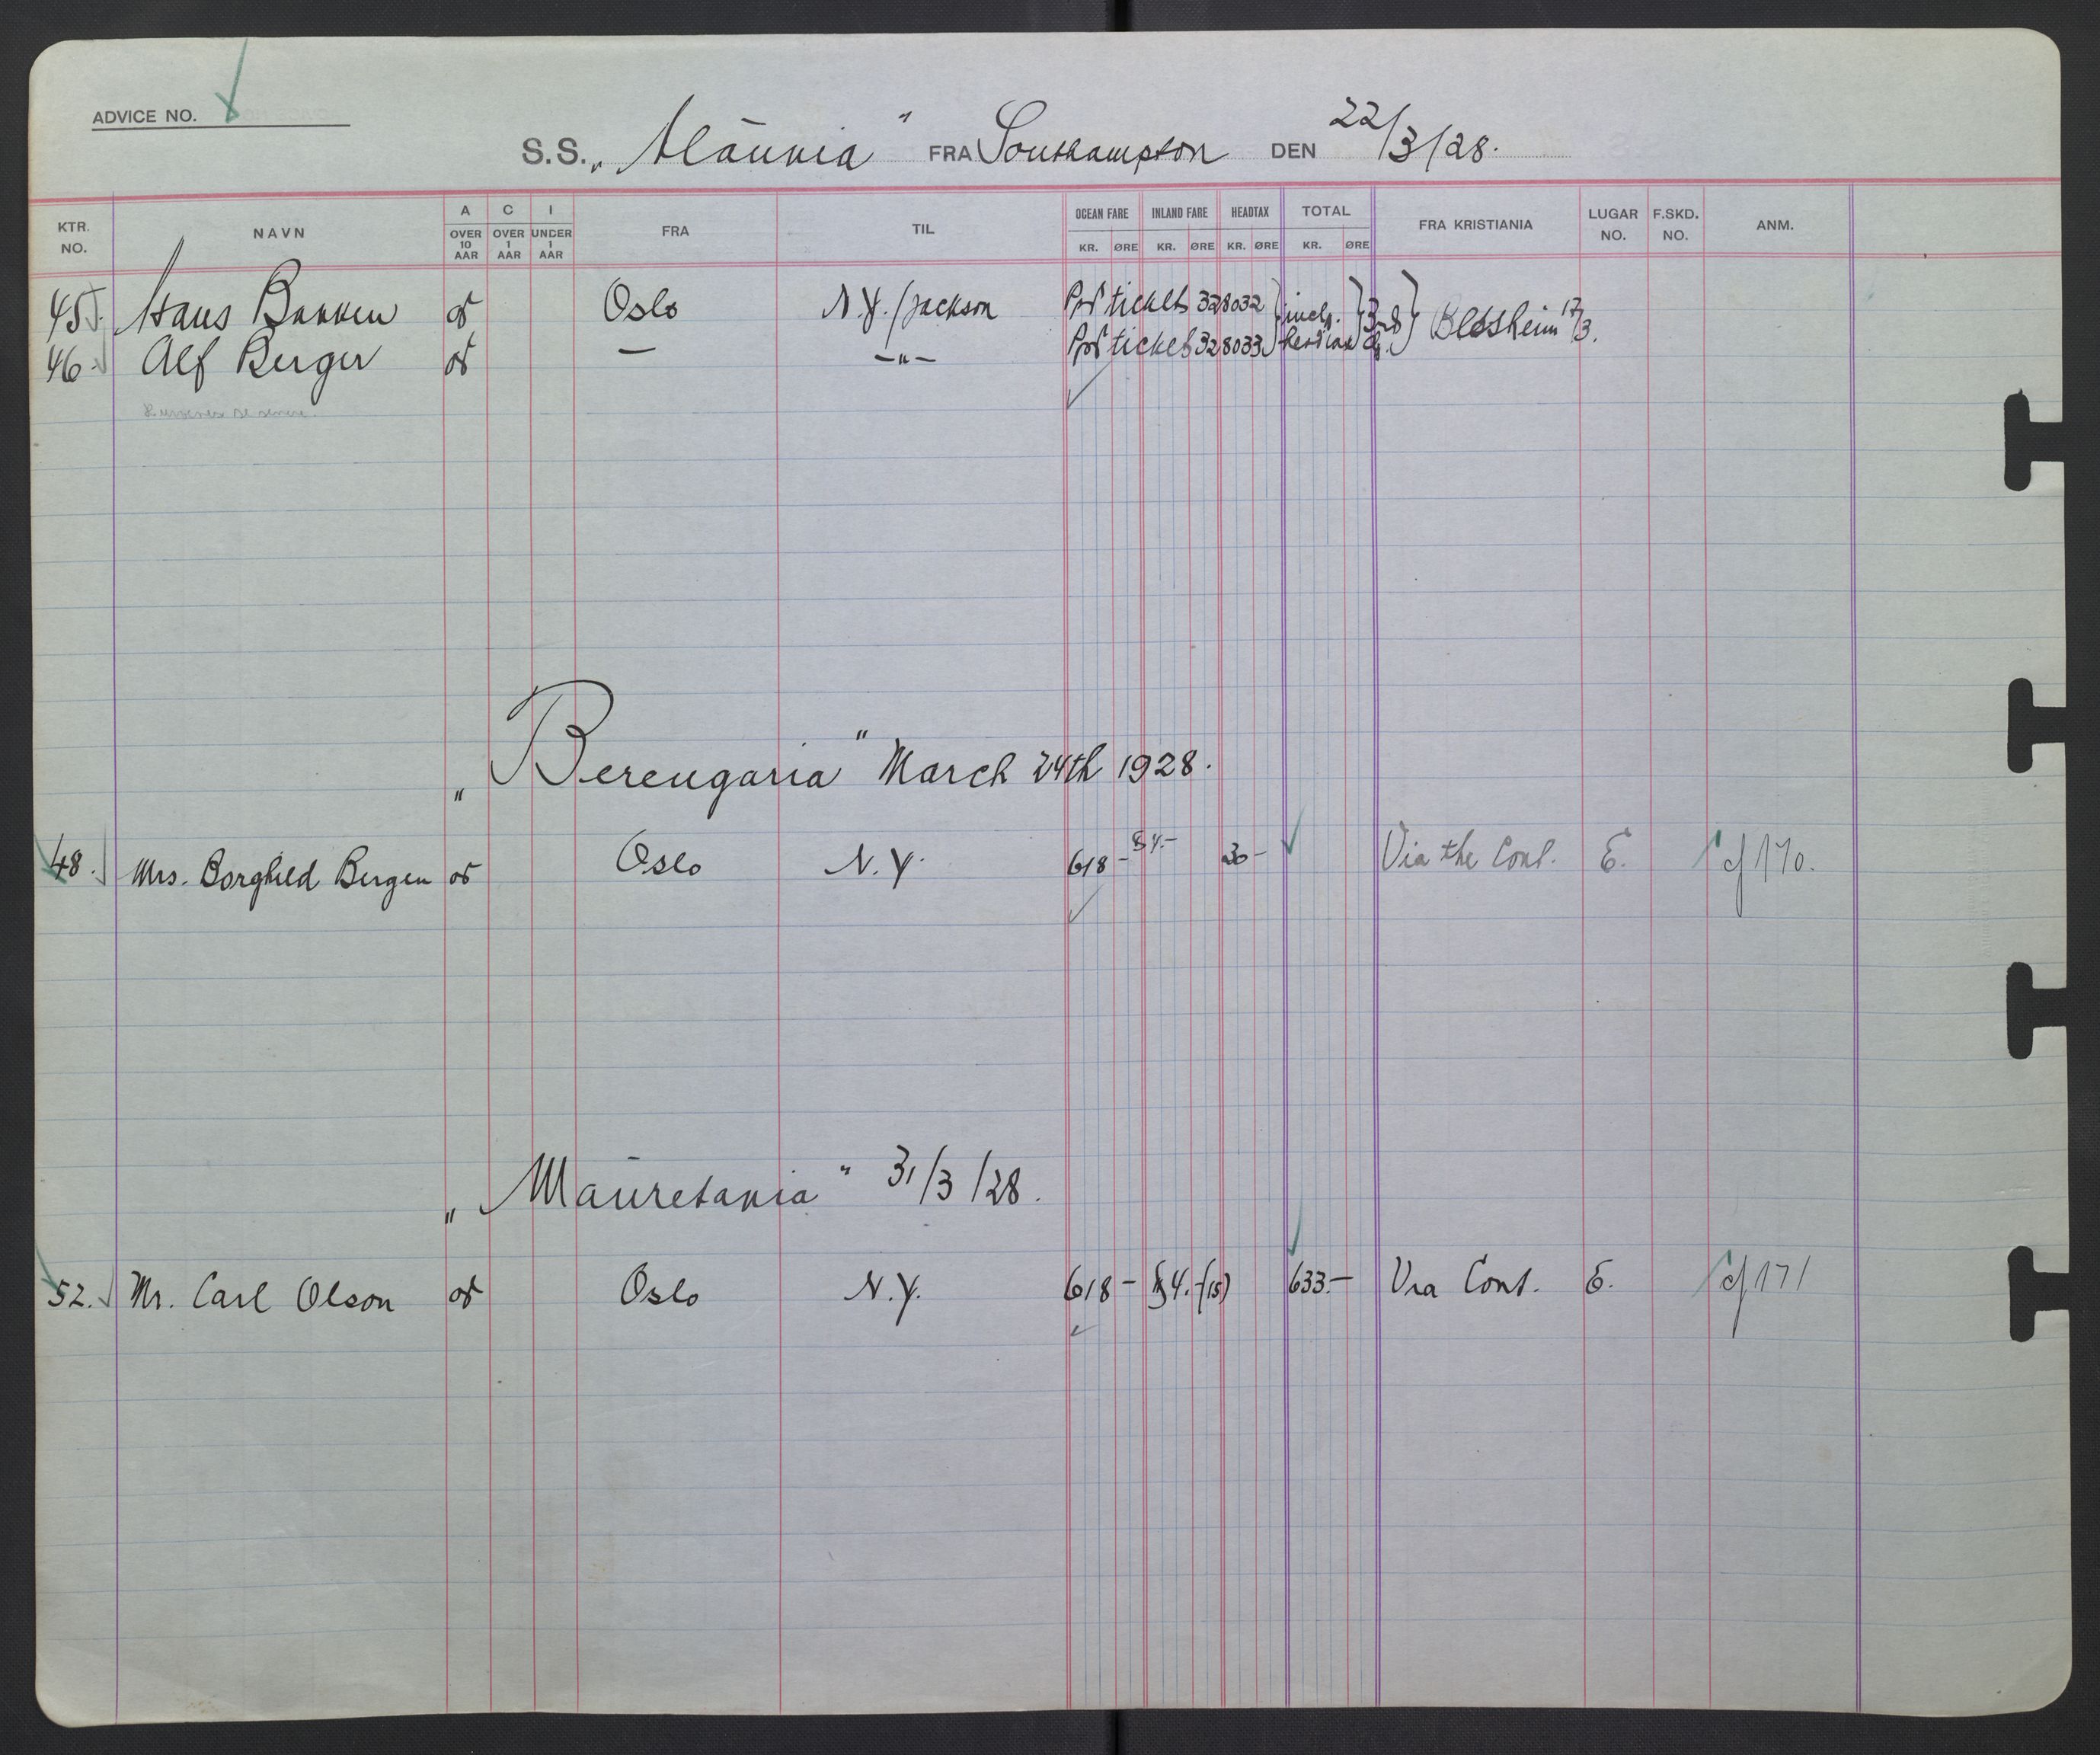 ADVICE NO.
S.S. „Alaunia" FRA Southampton DEN 22/3/28.
KTR. NO. NAVN A OVER 10 AAR C OVER 1 AAR I UNDER 1 AAR FRA TIL OCEAN FARE KR. ØRE INLAND FARE KR. ØRE HEADTAX KR. ØRE TOTAL KR. ØRE FRA KRISTIANIA LUGAR NO. F.SKD. NO. ANM.
45. Hans Bakken Oslo N.Y./Jackson Ppd tickets 328032 incl. 3rd Blessheim 17/3.
46. Alf Berger — -"- Ppd ticket 328033 headtax cl.
„Berengaria" March 24th 1928.
48. Mrs. Borghild Bergen Oslo N.Y. 618- $4.- 30- Via the Cont. E. cf 170.
„Mauretania" 31/3/28.
52. Mr. Carl Olson Oslo N.Y. 618- $4.-(15) 633.- Via Cont. E. cf 171